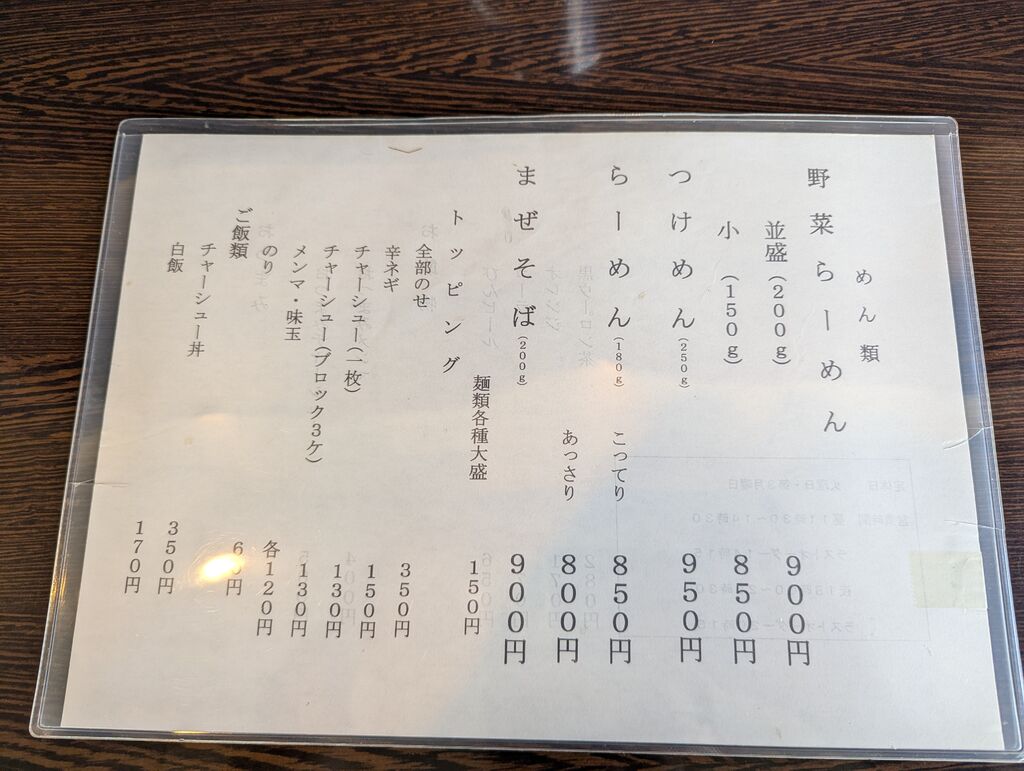 めん類
野菜らーめん
並盛(200g) 900円
小(150g) 850円
つけめん(250g) 950円
らーめん(180g) こってり 850円
あっさり 800円
まぜそば(200g) 900円
麺類各種大盛 150円
トッピング
全部のせ 350円
辛ネギ 150円
チャーシュー(一枚) 130円
チャーシュー(ブロック3ケ) 130円
メンマ・味玉 各120円
のり
ご飯類
チャーシュー丼 350円
白飯 170円